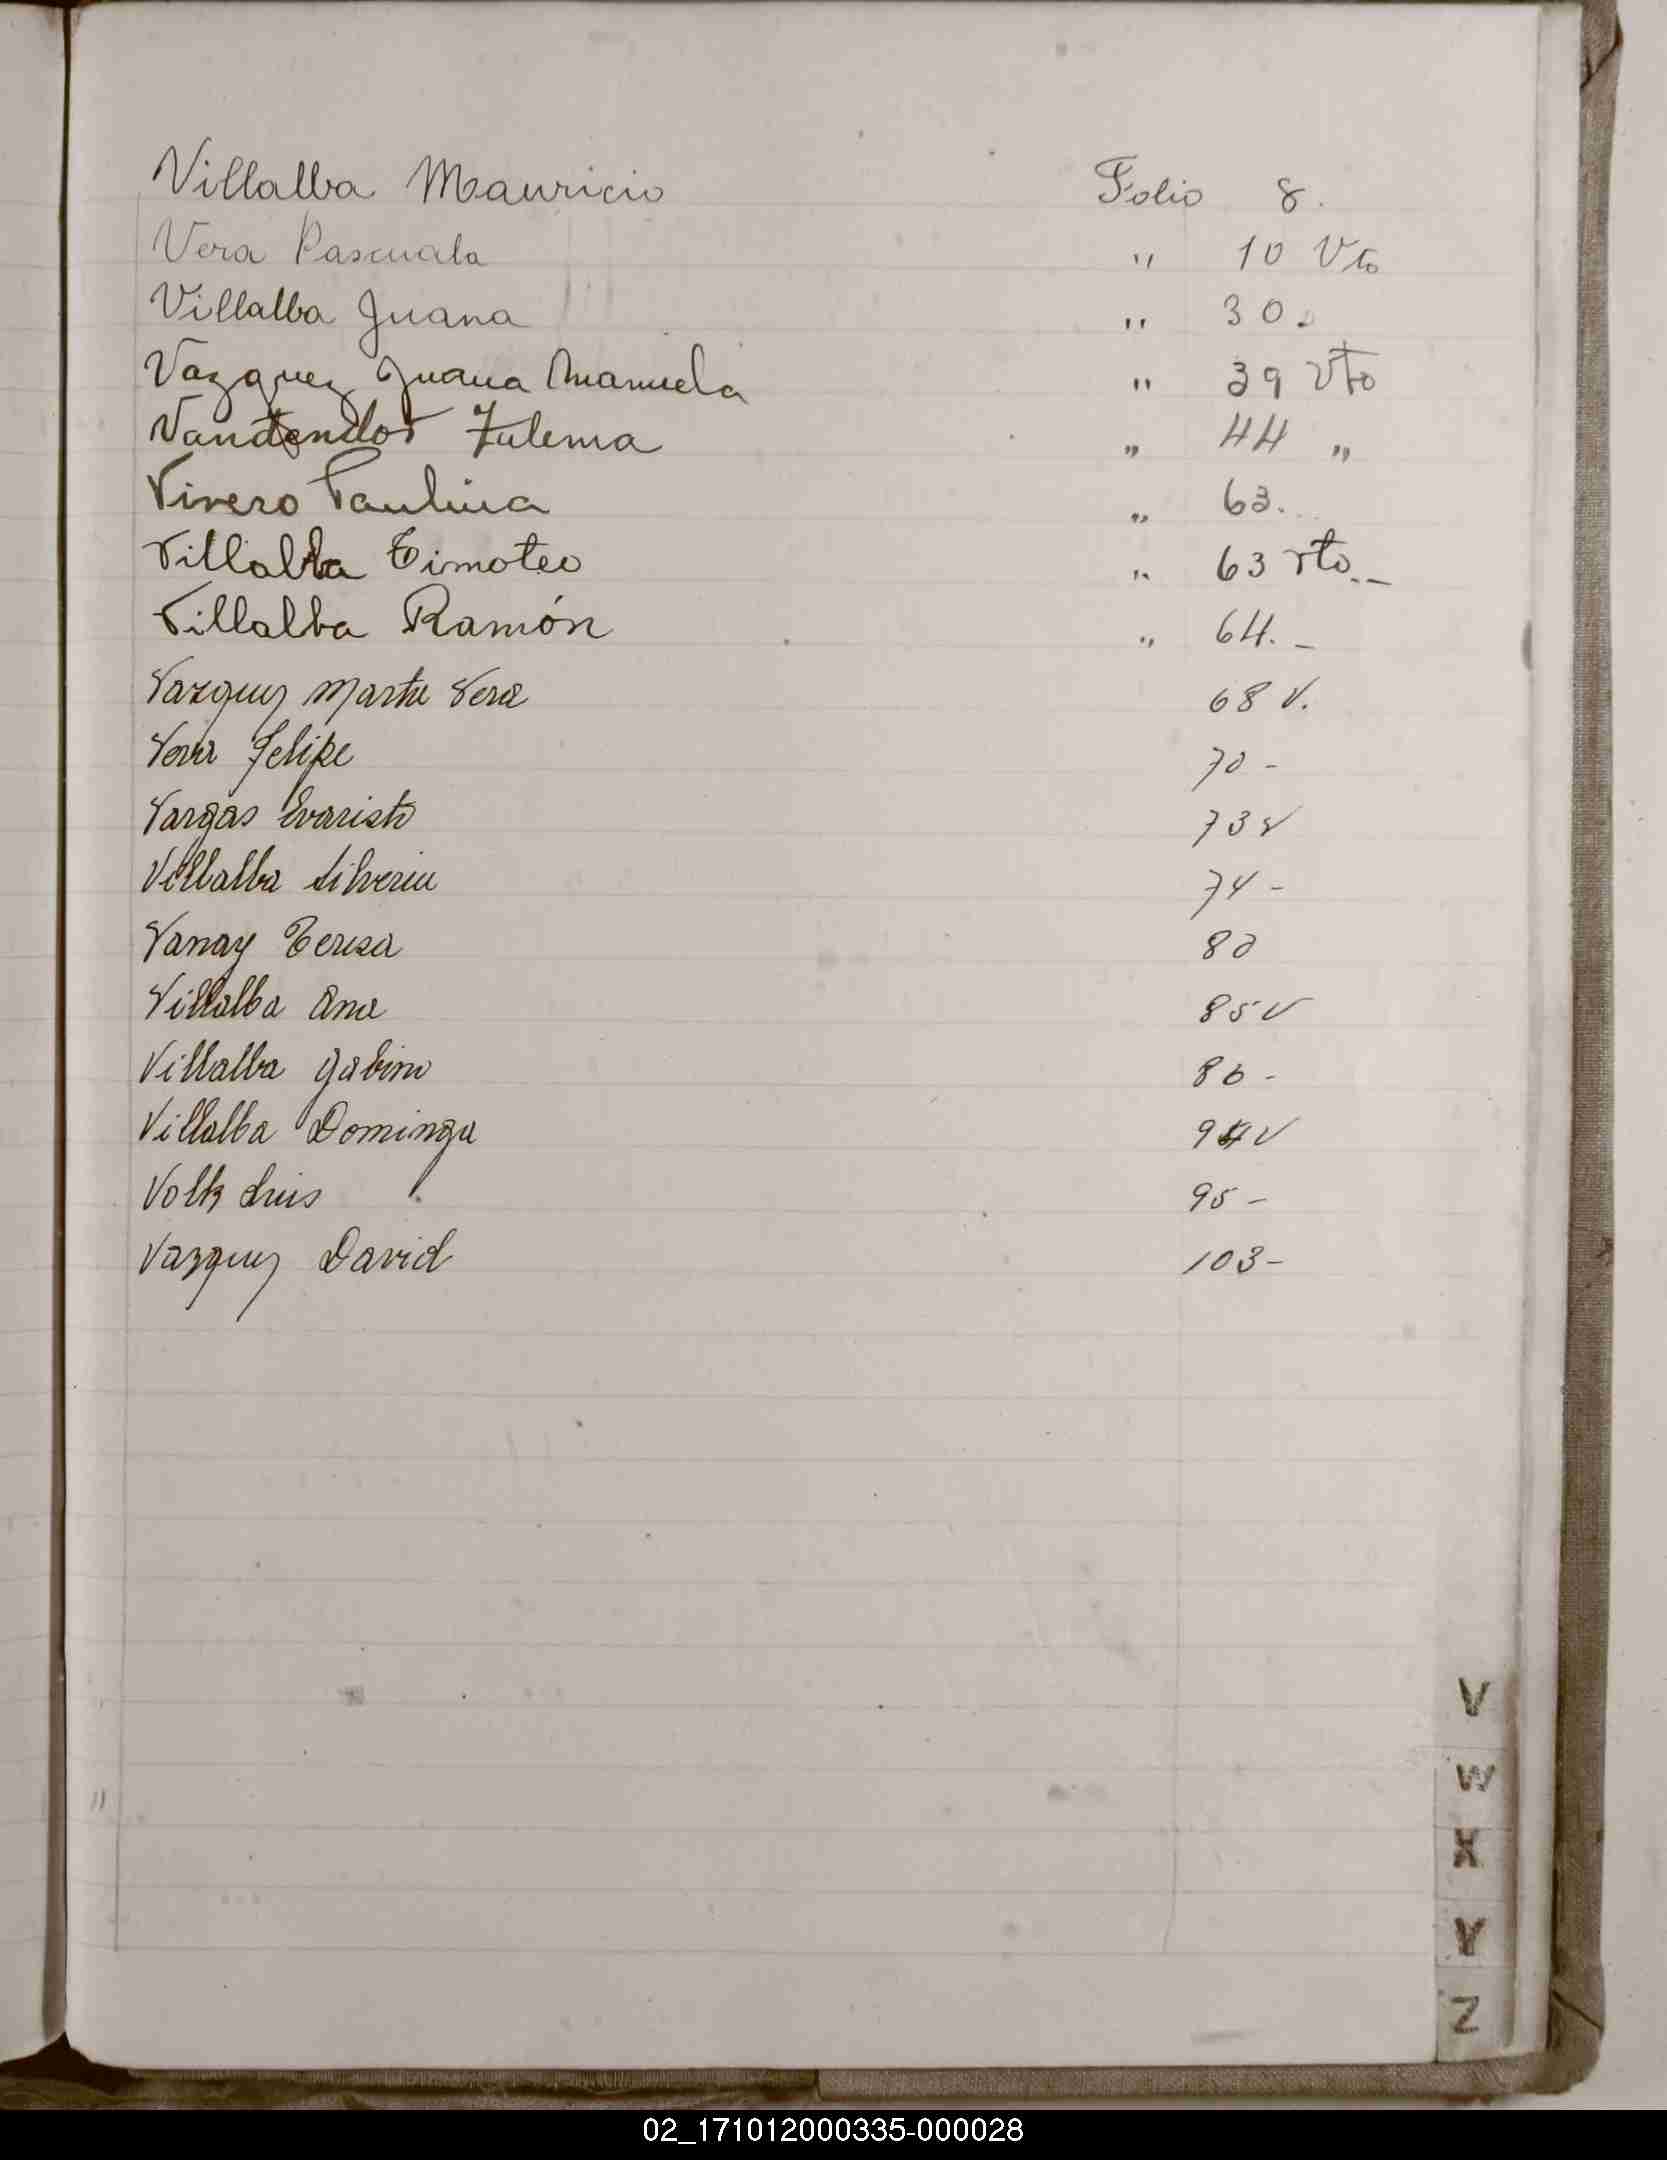 Villalba Mauricio Folio 8.
Vera Pascuala " 10 Vto
Villalba Juana " 30.
Vazquez Juana Manuela " 39 Vto
Zulema " 44 "
Vivero Paulina " 63.
Villalba Timoteo " 63 vto. _
Villalba Ramón " 64. _
Vazquez Vera 68 V.
Vera Felipe 70 -
Vargas Evaristo 73 v
Villalba Silveria 74 -
Vanay Teresa 80
Villalba Ana 85 V
Villalba Gabino 86 -
Villalba Dominga 94 V
Volk Luis 95 -
Vazquez David 103 -
V
W
X
Y
Z
02_171012000335-000028